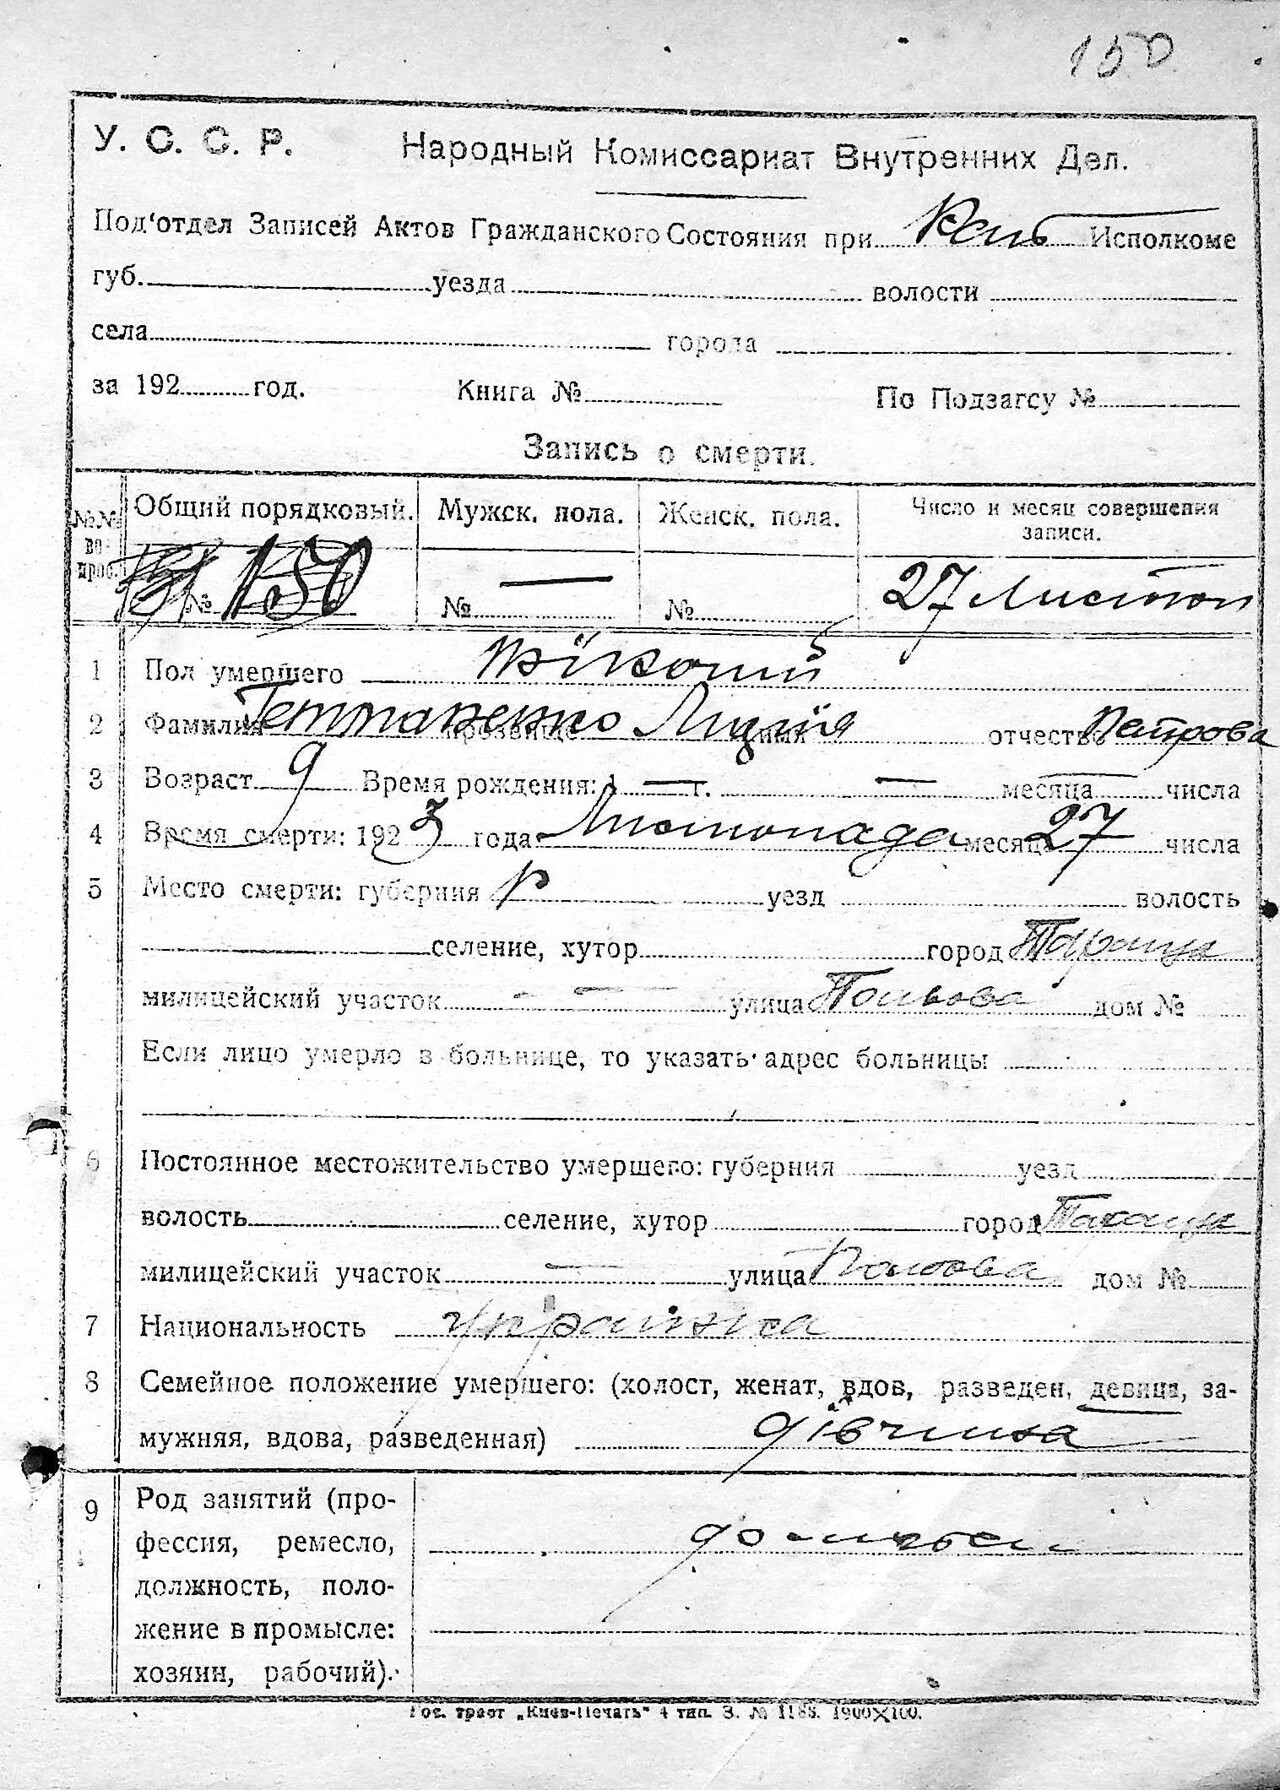 150
У. С. С. Р. Народный Комиссариат Внутренних Дел.
Под'отдел Записей Актов Гражданского Состояния при Исполкоме
губ. уезда волости
села города
за 192 год. Книга № По Подзагсу №
Запись о смерти.
№№ вопроб. Общий порядковый. Мужск. пола. Женск. пола. Число и месяц совершения записи.
№ 150 № — № 27 Листопад
1 Пол умершего жіночий
2 Фамилия прозвище Лидія имя отчество Петрова
3 Возраст 9 Время рождения: 1 — г. — месяца — числа
4 Время смерти: 1923 года Листопада месяца 27 числа
5 Место смерти: губерния уезд волость
селение, хутор город Тараща
милицейский участок — — улица дом №
Если лицо умерло в больнице, то указать адрес больницы
6 Постоянное местожительство умершего: губерния уезд
волость селение, хутор город Тараща
милицейский участок — улица дом №
7 Национальность українка
8 Семейное положение умершего: (холост, женат, вдов, разведен, девица, за-
мужняя, вдова, разведенная) дівчина
9 Род занятий (про-
фессия, ремесло,
должность, поло-
жение в промысле:
хозяин, рабочий).
Гос. трест „Киев-Печать" 4 тип. З. № 1185. 1900×100.